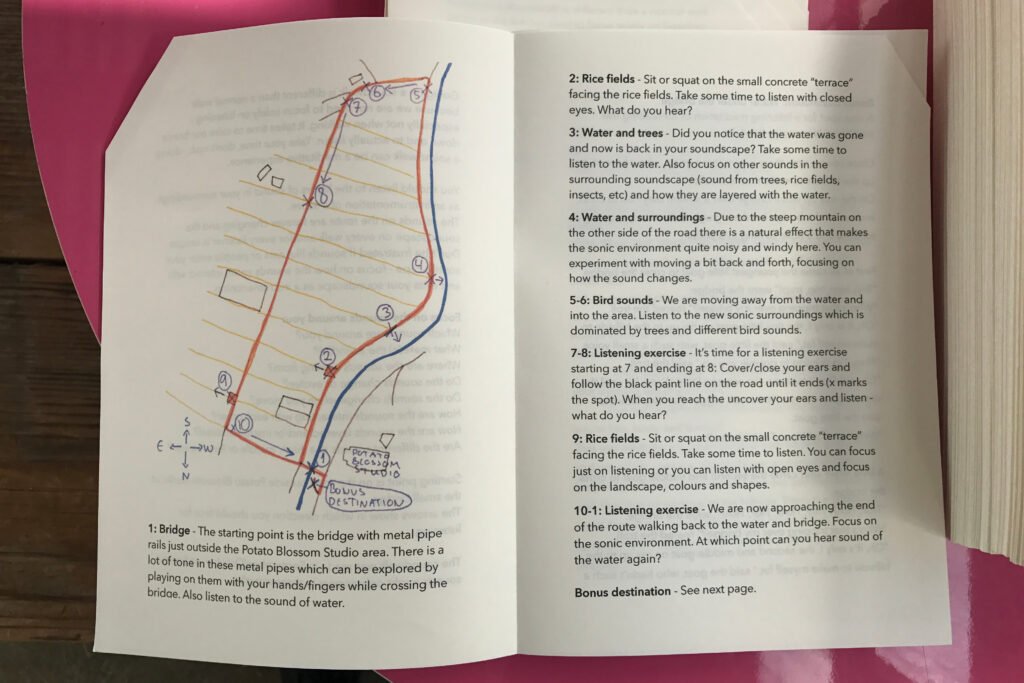 6
5
7
8
4
3
2
9
10
S
E
W
N
1
POTATO
BLOSSOM
STUDIO
BONUS
DESTINATION
1: Bridge - The starting point is the bridge with metal pipe
rails just outside the Potato Blossom Studio area. There is a
lot of tone in these metal pipes which can be explored by
playing on them with your hands/fingers while crossing the
bridge. Also listen to the sound of water.
2: Rice fields - Sit or squat on the small concrete “terrace”
facing the rice fields. Take some time to listen with closed
eyes. What do you hear?
3: Water and trees - Did you notice that the water was gone
and now is back in your soundscape? Take some time to
listen to the water. Also focus on other sounds in the
surrounding soundscape (sound from trees, rice fields,
insects, etc) and how they are layered with the water.
4: Water and surroundings - Due to the steep mountain on
the other side of the road there is a natural effect that makes
the sonic environment quite noisy and windy here. You can
experiment with moving a bit back and forth, focusing on
how the sound changes.
5-6: Bird sounds - We are moving away from the water and
into the area. Listen to the new sonic surroundings which is
dominated by trees and different bird sounds.
7-8: Listening exercise - It’s time for a listening exercise
starting at 7 and ending at 8: Cover/close your ears and
follow the black paint line on the road until it ends (x marks
the spot). When you reach the uncover your ears and listen -
what do you hear?
9: Rice fields - Sit or squat on the small concrete “terrace”
facing the rice fields. Take some time to listen. You can focus
just on listening or you can listen with open eyes and focus
on the landscape, colours and shapes.
10-1: Listening exercise - We are now approaching the end
of the route walking back to the water and bridge. Focus on
the sonic environment. At which point can you hear sound of
the water again?
Bonus destination - See next page.